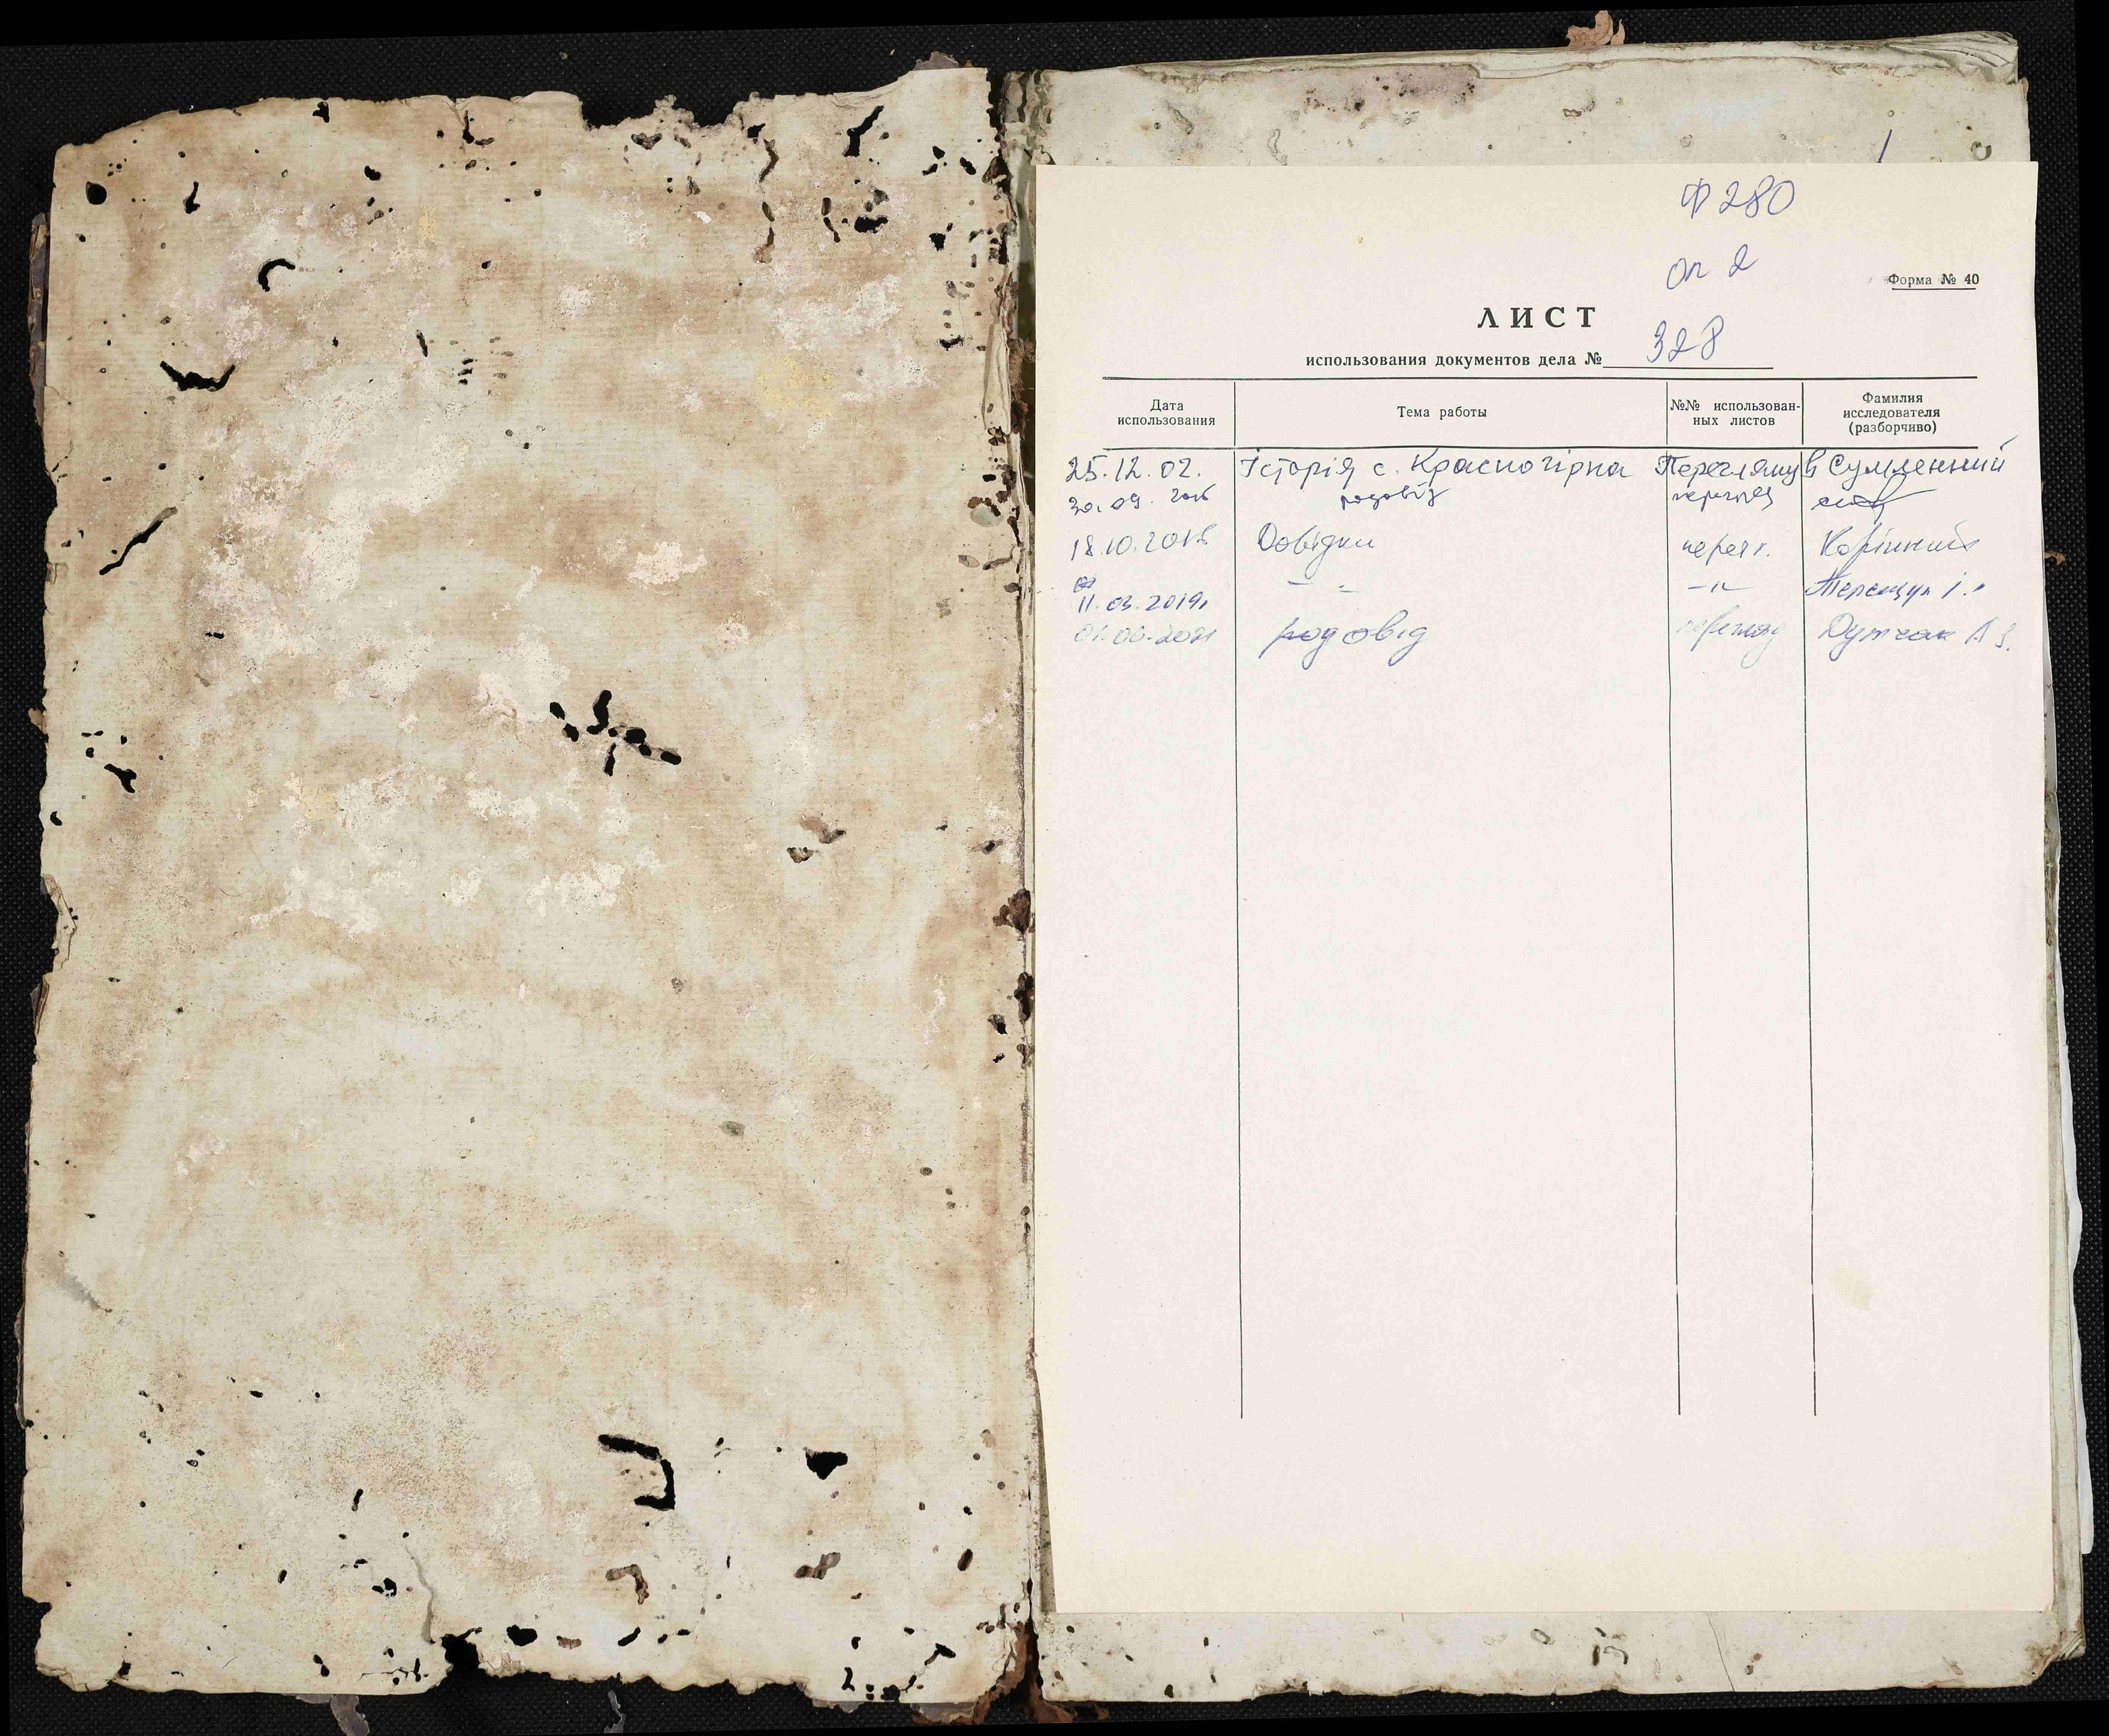 1
Ф 280
оп 2
Форма № 40
ЛИСТ
использования документов дела № 328
Дата использования
Тема работы
№№ использован-
ных листов
Фамилия
исследователя
(разборчиво)
25.12.02. Історія с. Красногірка Переглянув Сумленний
30.09. 2016 родовід перегляд
18.10.2018 Довідки перегл. Корінний
11.03.2019 - " - -"- Терещук І.
06.2021 родовід перегляд Дутчак